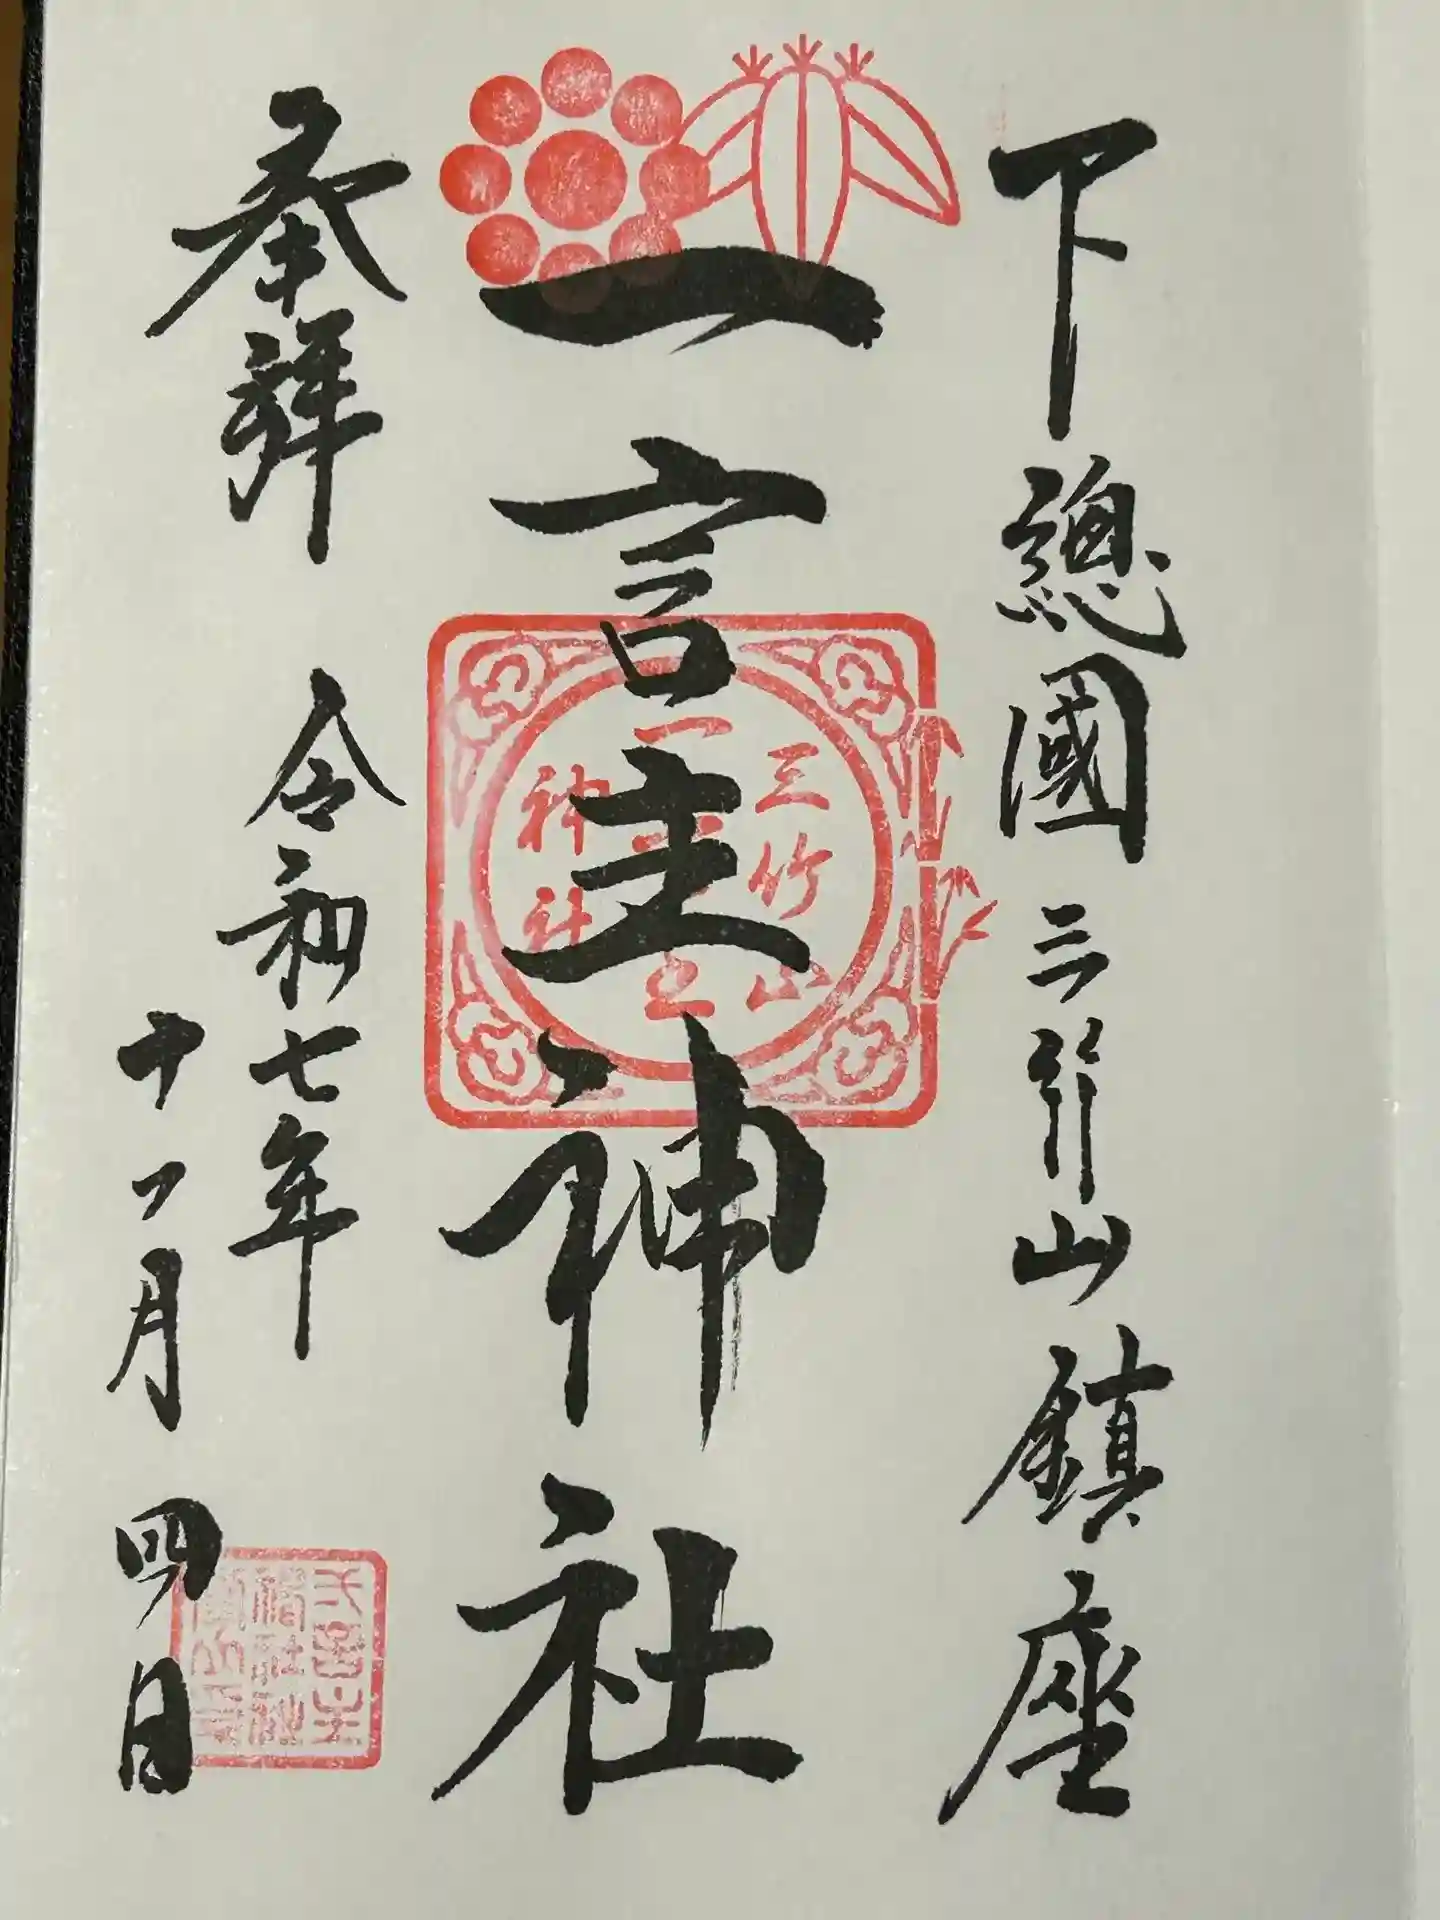 下總國三竹山鎮座
一言主神社
三竹山
一言主
神社
奉拝
令和七年
十一月四日